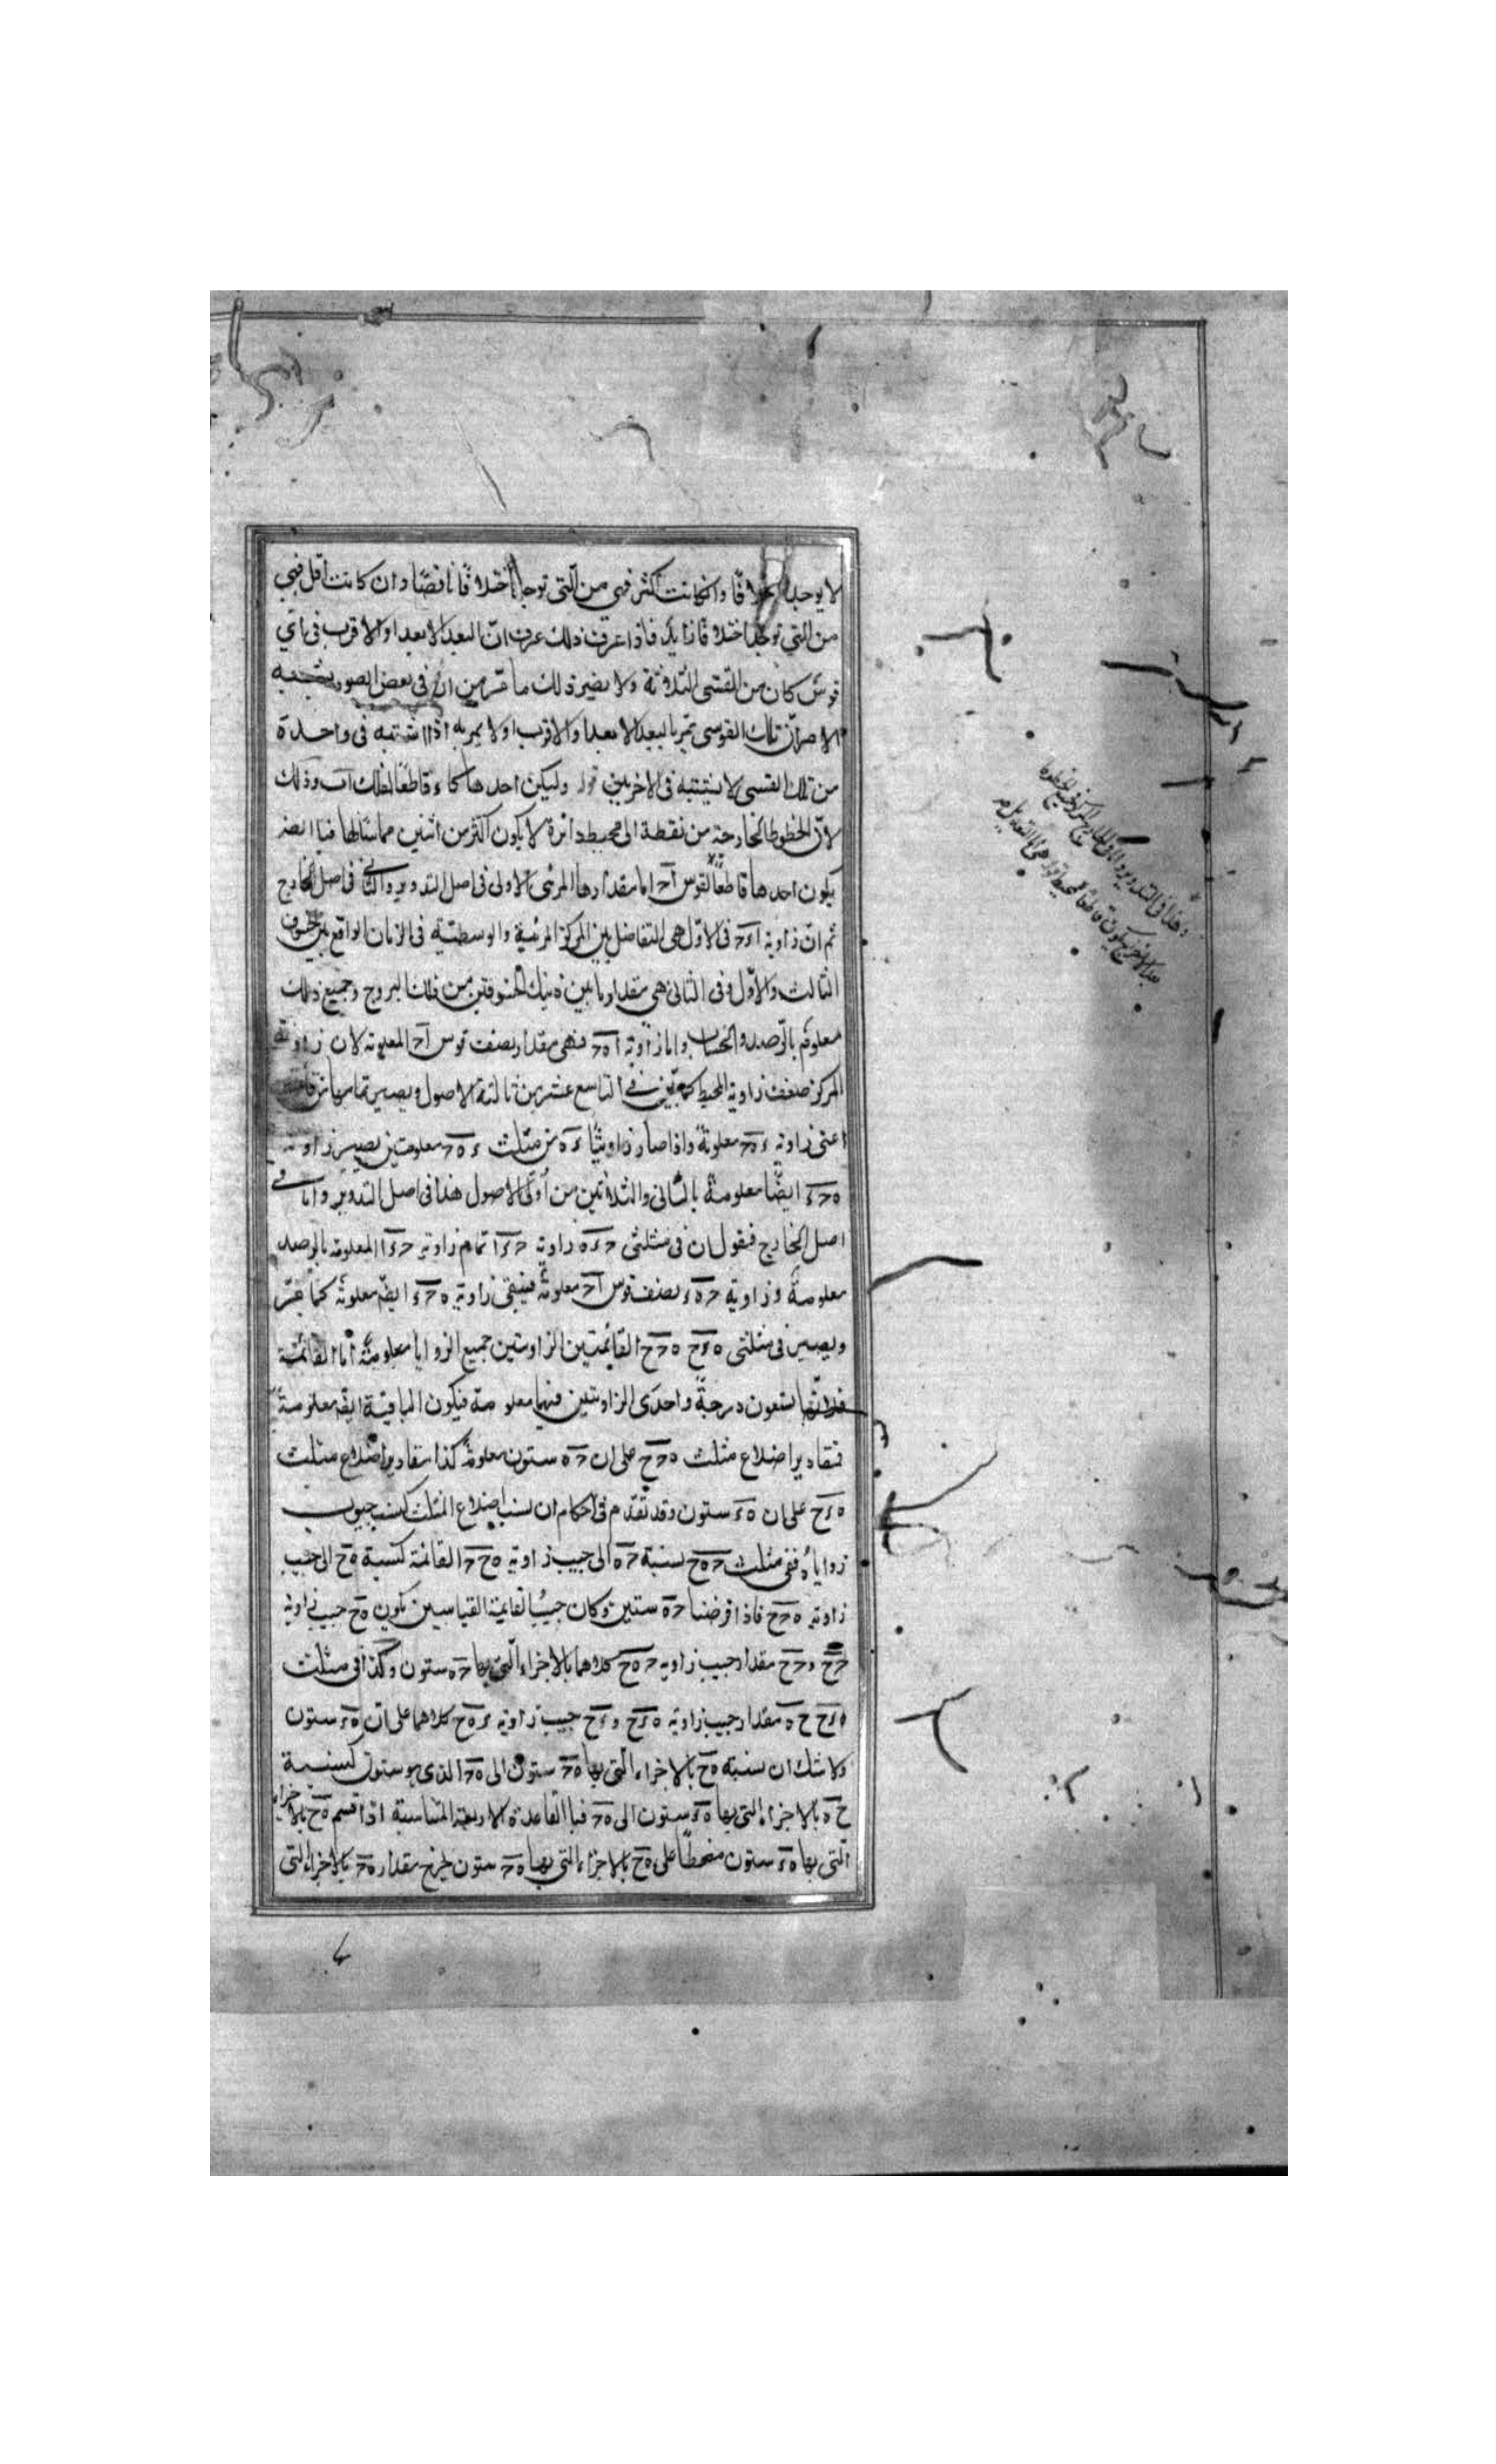 لا يوجد اختلافًا وان كانت اكثر فهى من التى توجد اختلافًا ناقصًا وان كانت اقل فهى
من التي توجد اختلافًا زايدًا فاذا عرف ذلك عرف ان البعد الابعد او الاقرب فى اي
قوس كان من القسى الثلاثة ولا يضير ذلك ما مر من ان فى بعض الصور يشتبه
الامر ان تلك القوسى تمر بالبعد الابعد او الاقرب او لا يمر به اذ اشتبه فى واحدة
من تلك القسى لا يشتبه فى الاخريين قوله وليكن احدها كاء قاطعًا لفلك اب وذلك
لان الخطوط الخارجة من نقطة الى محيط دائرة لا يكون اكثر من اثنين مماسًا لها
يكون احدها قاطعًا لقوس اح اما مقدارها المرئى الاولى فى اصل التدوير والثانى فى اصل الخارج
ثم ان زاوية اءح فى الاول هى التفاضل بين المركز المرئية والوسطية فى الزمان الواقع بين الخسوف
الثالث والاول وفى الثانى هى مقدار ما بين ذينك الخسوفين من فلك البروج وجميع ذلك
معلوم بالرصد والحساب واما زاوية اهح فهى مقدار نصف قوس اح المعلومة لان زاوية
المركز ضعف زاوية المحيط كما تبين فى التاسع عشر من ثالثة الاصول ويصير تمامها من قائمتين
اعنى زاوية ءهح معلومة واذا صار زاويتا ءه من مثلث ءهح معلومتين يصير زاوية
هحء ايضًا معلومة بالثانى والثلاثين من اولى الاصول هذا فى اصل التدوير واما فى
اصل الخارج فنقول ان فى مثلثى حءه زاوية حءا تمام زاوية حءا المعلومة بالرصد
معلومة وزاوية حهء نصف قوس اح معلومة فيبقى زاوية هحء ايضًا معلومة كما مر
ويصير فى مثلثى هءح هحح القائمتين الزاويتين جميع الزوايا معلومة اما القائمة
فلانها تسعون درجة واحدى الزاويتين فيهما معلومة فيكون الباقية ايضًا معلومة
فمقادير اضلاع مثلث هحح على ان حه ستون معلومة كذا مقادير اضلاع مثلث
هءح على ان هء ستون وقد تقدم فى احكام ان نسب اضلاع المثلث كنسب جيوب
زواياه ففى مثلث حهح نسبة حه الى جيب زاوية هحح القائمة كنسبة هح الى جيب
زاوية هحح فاذا فرضنا حه ستين وكان جيب القائمة القياسين يكون هح جيب زاوية
حح وحح مقدار جيب زاوية حهح كلاهما بالاجزاء التى بها حه ستون وكذا فى مثلث
هءح حه مقدار جيب زاوية هءح وءح جيب زاوية ءهح كلاهما على ان هء ستون
ولا شك ان نسبة هح بالاجزاء التى بها هح ستون الى هح الذى هو ستون كنسبة
حه بالاجزاء التى بها هء ستون الى هح فبالقاعدة الاربعة المتناسبة اذا قسم هح بالاجزاء
التى بها هء ستون منحطًا على هح بالاجزاء التى بها هح ستون خرج مقدار هح بالاجزاء التى